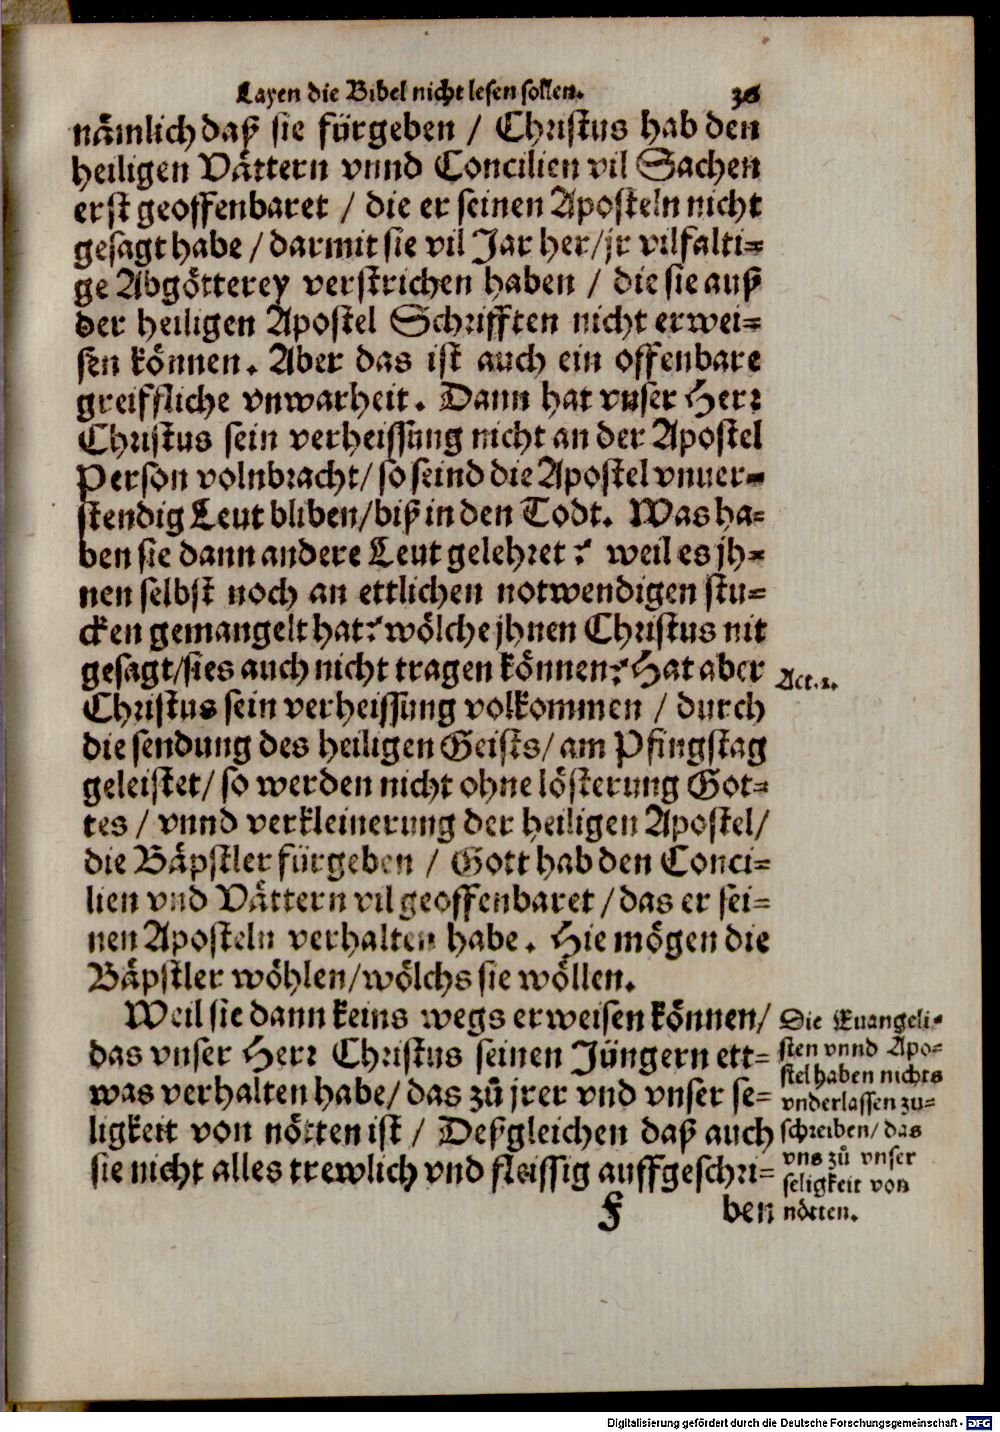 Layen die Bibel nicht lesen sollen. 36
nämlich daß sie fürgeben / Christus hab den
heiligen Vättern vnnd Concilien vil Sachen
erst geoffenbaret / die er seinen Aposteln nicht
gesagt habe / darmit sie vil Jar her / jr vilfalti=
ge Abgötterey verstrichen haben / die sie auß
der heiligen Apostel Schrifften nicht erwei=
sen können. Aber das ist auch ein offenbare
greiffliche vnwarheit. Dann hat vnser Herr
Christus sein verheissung nicht an der Apostel
Person volnbracht / so seind die Apostel vnuer=
stendig Leut bliben / biß in den Todt. Was ha=
ben sie dann andere Leut gelehret? weil es jh=
nen selbst noch an ettlichen notwendigen stu=
cken gemangelt hat? wölche jhnen Christus nit
gesagt / sies auch nicht tragen können? Hat aber
Act.1.
Christus sein verheissung volkommen / durch
die sendung des heiligen Geists / am Pfingstag
geleistet / so werden nicht ohne lösterung Got=
tes / vnnd verkleinerung der heiligen Apostel /
die Bäpstler fürgeben / Gott hab den Conci=
lien vnd Vättern vil geoffenbaret / das er sei=
nen Aposteln verhalten habe. Hie mögen die
Bäpstler wöhlen / wölchs sie wöllen.
Weil sie dann keins wegs erweisen können /
das vnser Herr Christus seinen Jüngern ett=
was verhalten habe / das zů jrer vnd vnser se=
ligkeit von nötten ist / Deßgleichen daß auch
sie nicht alles trewlich vnd fleissig auffgeschri=
Die Euangeli=
sten vnnd Apo=
stel haben nichts
vnderlassen zu=
schreiben / das
vns zů vnser
seligkeit von
nötten.
F ben
Digitalisierung gefördert durch die Deutsche Forschungsgemeinschaft - DFG